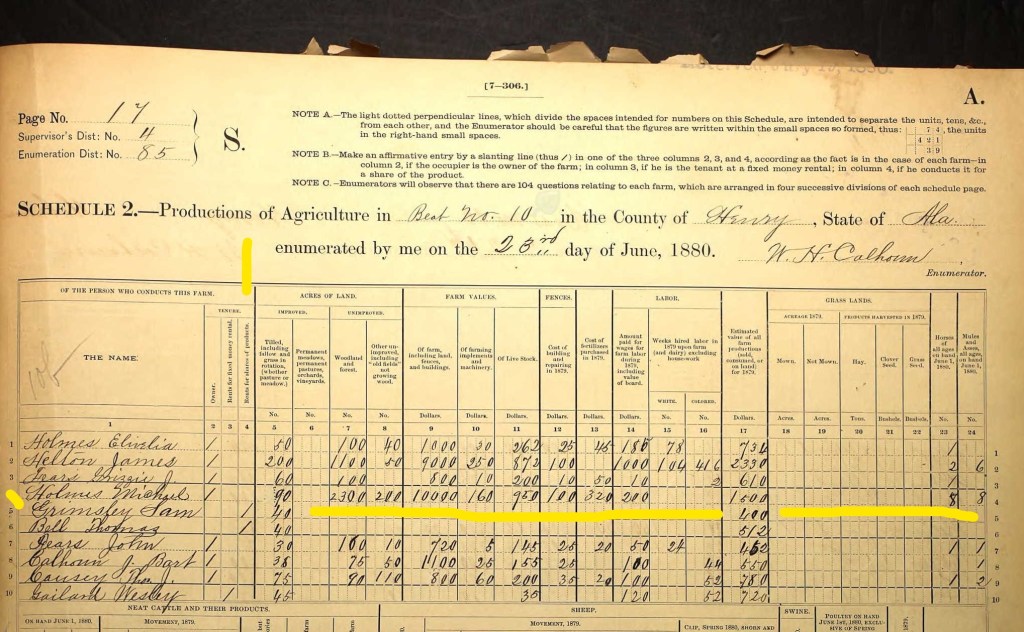 [7-306.]
A.
Page No. 17
Supervisor's Dist: No. 4
Enumeration Dist: No. 85
S.
NOTE A.—The light dotted perpendicular lines, which divide the spaces intended for numbers on this Schedule, are intended to separate the units, tens, &c., from each other, and the Enumerator should be careful that the figures are written within the small spaces so formed, thus: 74, the units
421
39
in the right-hand small spaces.
NOTE B.—Make an affirmative entry by a slanting line (thus /) in one of the three columns 2, 3, and 4, according as the fact is in the case of each farm—in
column 2, if the occupier is the owner of the farm; in column 3, if he is the tenant at a fixed money rental; in column 4, if he conducts it for
a share of the product.
NOTE C.—Enumerators will observe that there are 104 questions relating to each farm, which are arranged in four successive divisions of each schedule page.
SCHEDULE 2.—Productions of Agriculture in Beat No. 10 in the County of Henry, State of Ala.
enumerated by me on the 23rd day of June, 1880. W. H. Calhoun,
Enumerator.
OF THE PERSON WHO CONDUCTS THIS FARM. ACRES OF LAND. FARM VALUES. FENCES. LABOR. GRASS LANDS.
TENURE. IMPROVED. UNIMPROVED. ACREAGE 1879. PRODUCTS HARVESTED IN 1879.
THE NAME.
Owner.
Rents for fixed money rental.
Rents for shares of products.
Tilled, including fallow and grass in rotation, (whether pasture or meadow.)
Permanent meadows, permanent pastures, orchards, vineyards.
Woodland and forest.
Other unimproved, including "old fields" not growing wood.
Of farm, including land, fences, and buildings.
Of farming implements and machinery.
Of Live Stock.
Cost of building and repairing in 1879.
Cost of fertilizers purchased in 1879.
Amount paid for wages for farm labor during 1879, including value of board.
Weeks hired labor in 1879 upon farm (and dairy) excluding house-work.
WHITE. COLORED.
Estimated value of all farm productions (sold, consumed, or on hand) for 1879.
Mown. Not Mown. Hay. Clover Seed. Grass Seed.
Horses of all ages on hand June 1, 1880.
Mules and Asses, all ages, on hand June 1, 1880.
No. No. No. No. Dollars. Dollars. Dollars. Dollars. Dollars. Dollars. No. No. Dollars. Acres. Acres. Tons. Bushels. Bushels. No. No.
1 2 3 4 5 6 7 8 9 10 11 12 13 14 15 16 17 18 19 20 21 22 23 24
1 Holmes 1 50 100 40 1000 30 262 25 45 78 1 1
2 Helton James 1 200 1100 50 9000 250 872 100 1000 104 416 2330 2 6 2
3 1 60 100 800 10 200 10 50 10 2 610 1 3
4 Holmes Michael 1 90 2300 200 10000 160 950 100 320 200 1500 8 8 4
5 Grimsley Sam 1 40 400 5
6 Bell Thomas 1 40 512 6
7 John 1 30 100 10 720 5 145 25 20 50 24 452 1 1 7
8 Calhoun J. Bart 1 75 50 1100 25 155 25 100 44 550 1 8
9 Causey J. 1 75 90 110 800 60 200 35 20 100 52 780 1 2 9
10 Wesley 1 45 120 52 720 10
NEAT CATTLE AND THEIR PRODUCTS. SHEEP. SWINE. POULTRY ON HAND JUNE 1ST, 1880, EXCLUSIVE OF SPRING
ON HAND JUNE 1, 1880. MOVEMENT, 1879. MOVEMENT, 1879. CLIP, SPRING 1880, SHORN AND